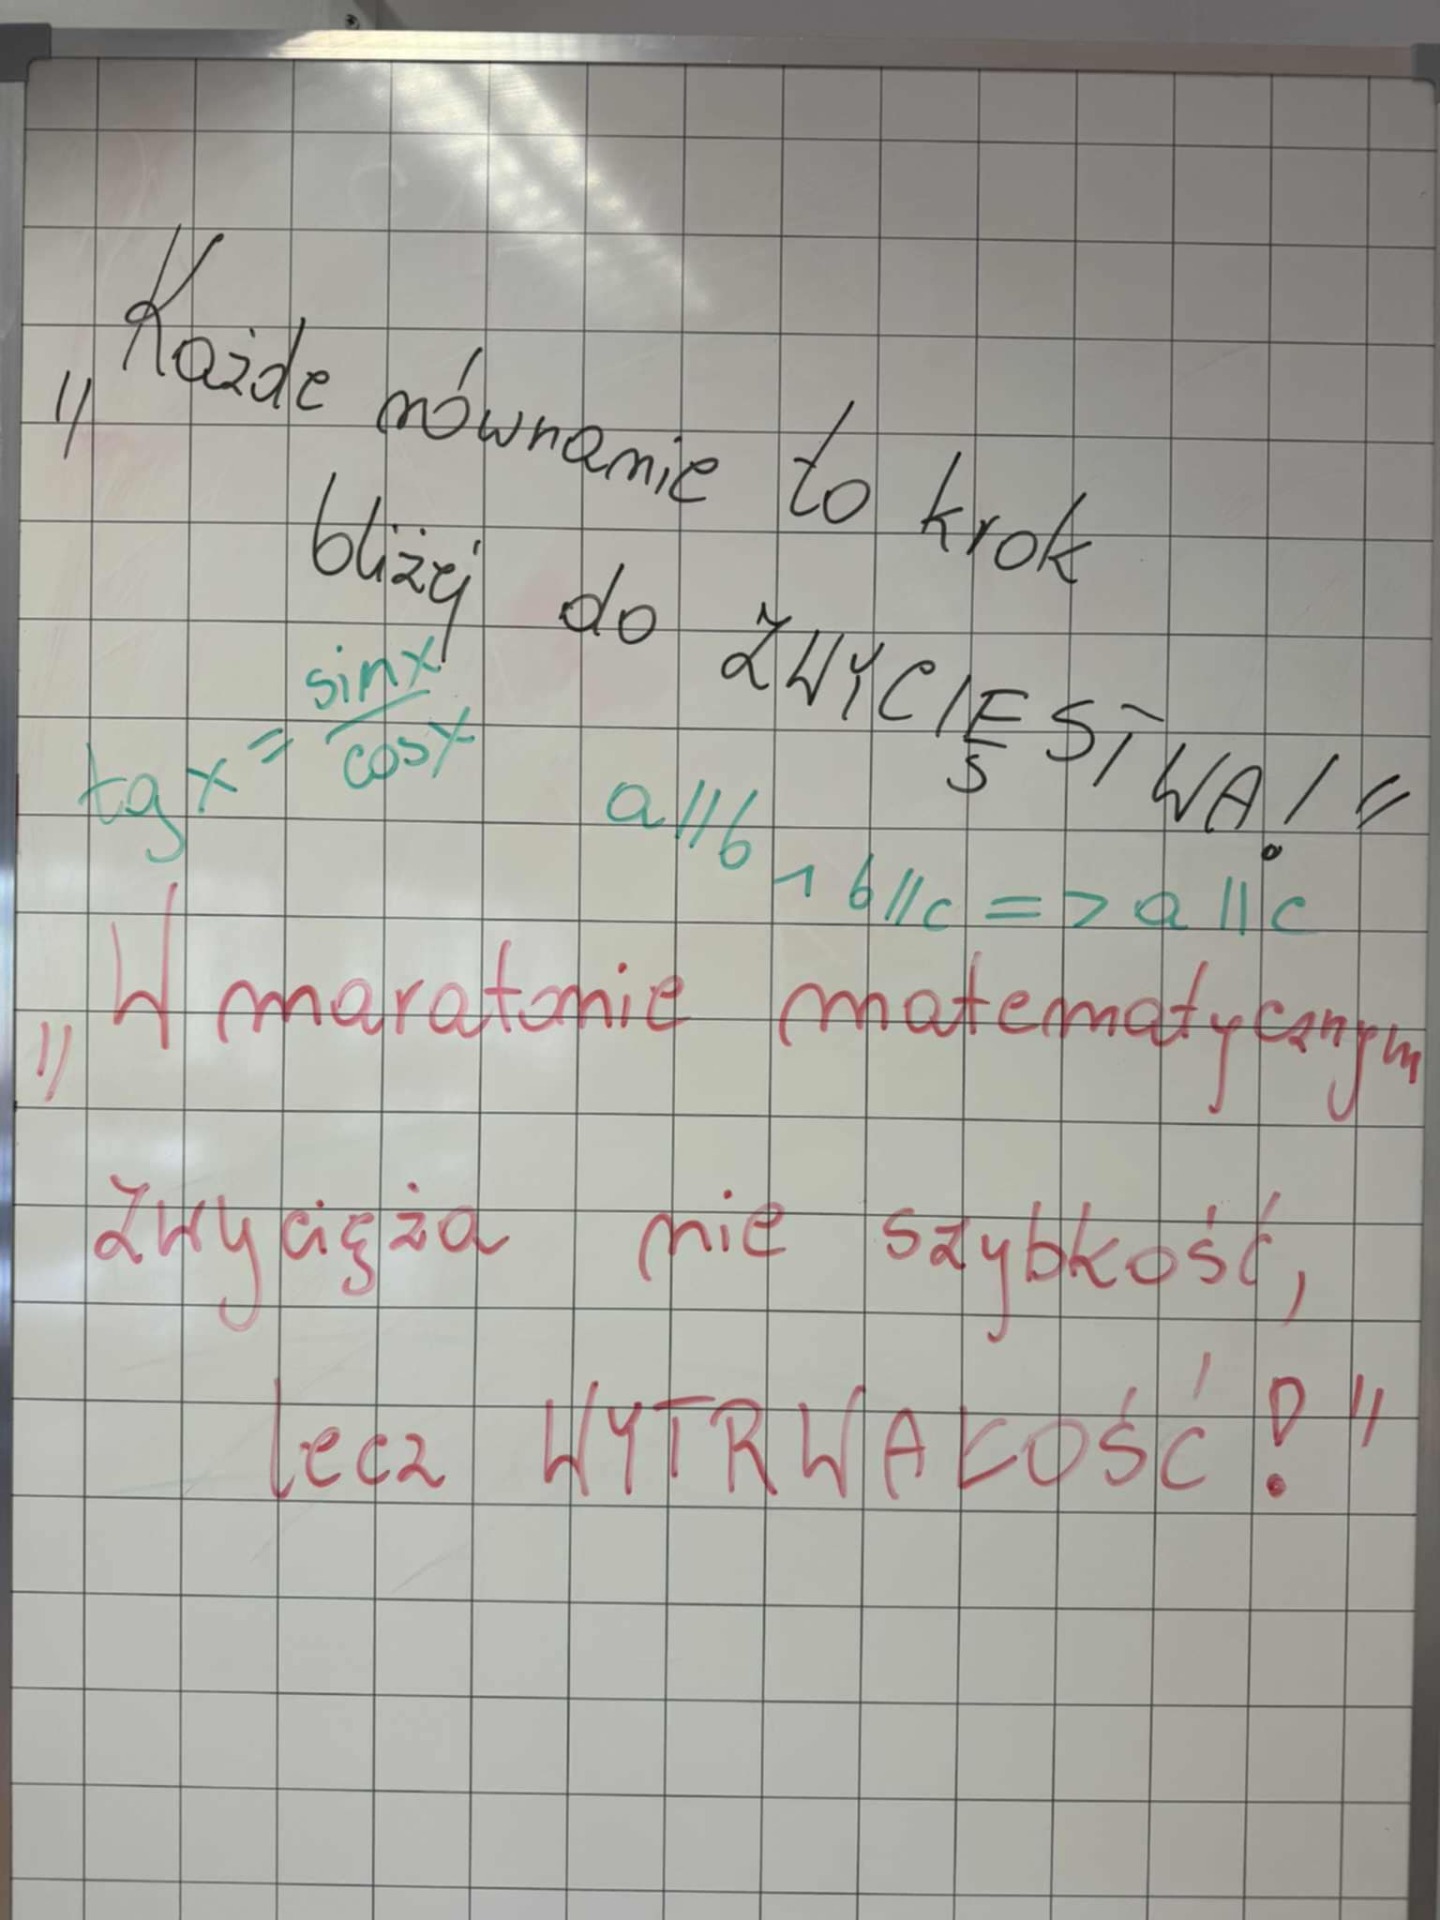 „Każde równanie to krok
bliżej do ZWYCIĘSTWA!"
tg x = sinx/cosx
a||b ∧ b||c => a||c
„W maratonie matematycznym
zwycięża nie szybkość,
lecz WYTRWAŁOŚĆ!"